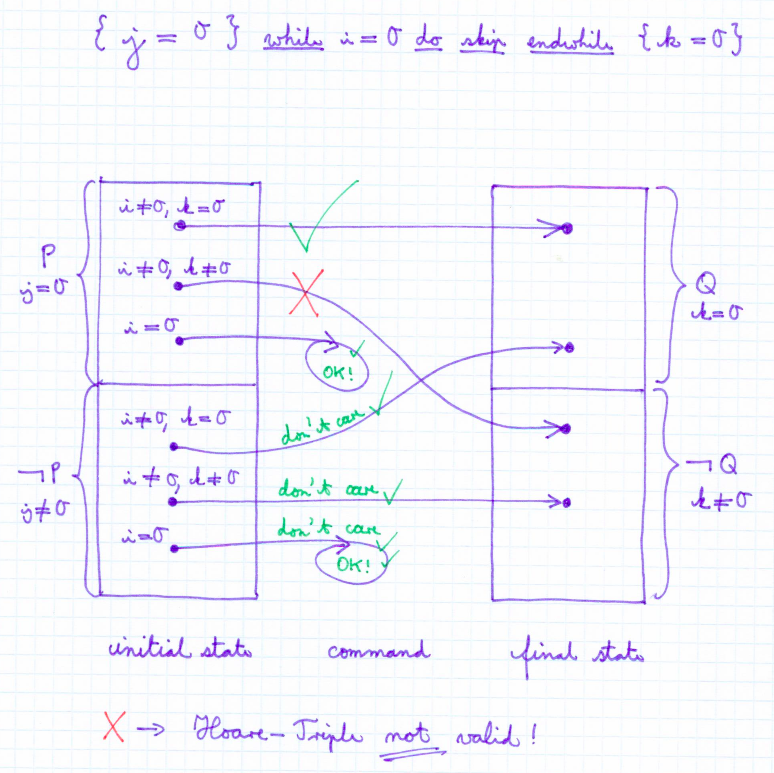 { j = 0 } while i = 0 do skip endwhile { k = 0 }
i ≠ 0, k = 0
P
j = 0
i ≠ 0, k ≠ 0
i = 0
OK!
Q
k = 0
i ≠ 0, k = 0
don't care
¬P
j ≠ 0
i ≠ 0, k ≠ 0
don't care
¬Q
k ≠ 0
i = 0
don't care
OK!
initial state command final state
X → Hoare-Triple not valid!